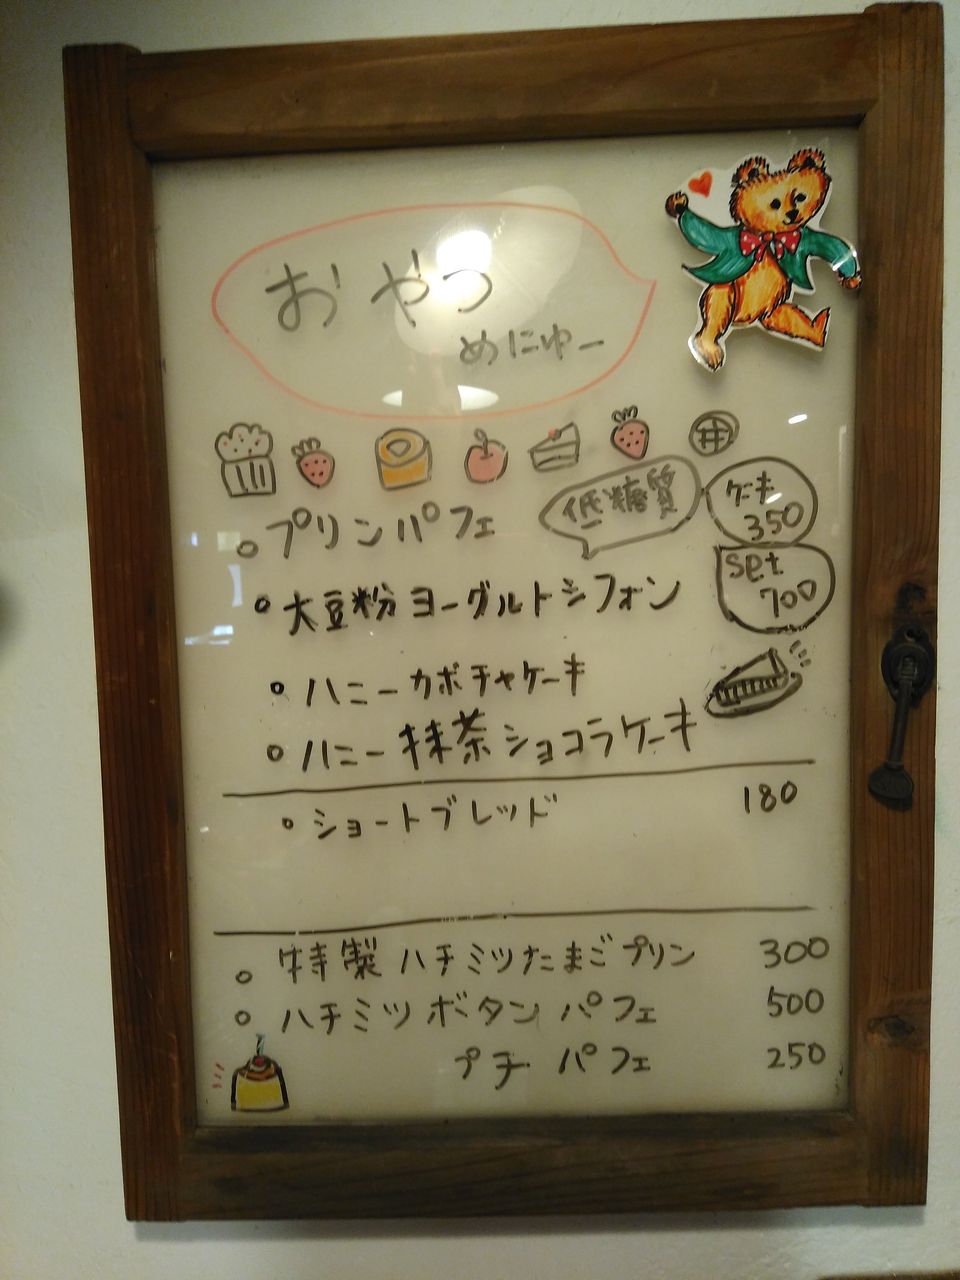 おやつ
めにゅー
低糖質
ケーキ
350
set
700
○プリンパフェ
○大豆粉ヨーグルトシフォン
○ハニーカボチャケーキ
○ハニー抹茶ショコラケーキ
○ショートブレッド 180
○特製ハチミツたまごプリン 300
○ハチミツボタンパフェ 500
プチパフェ 250